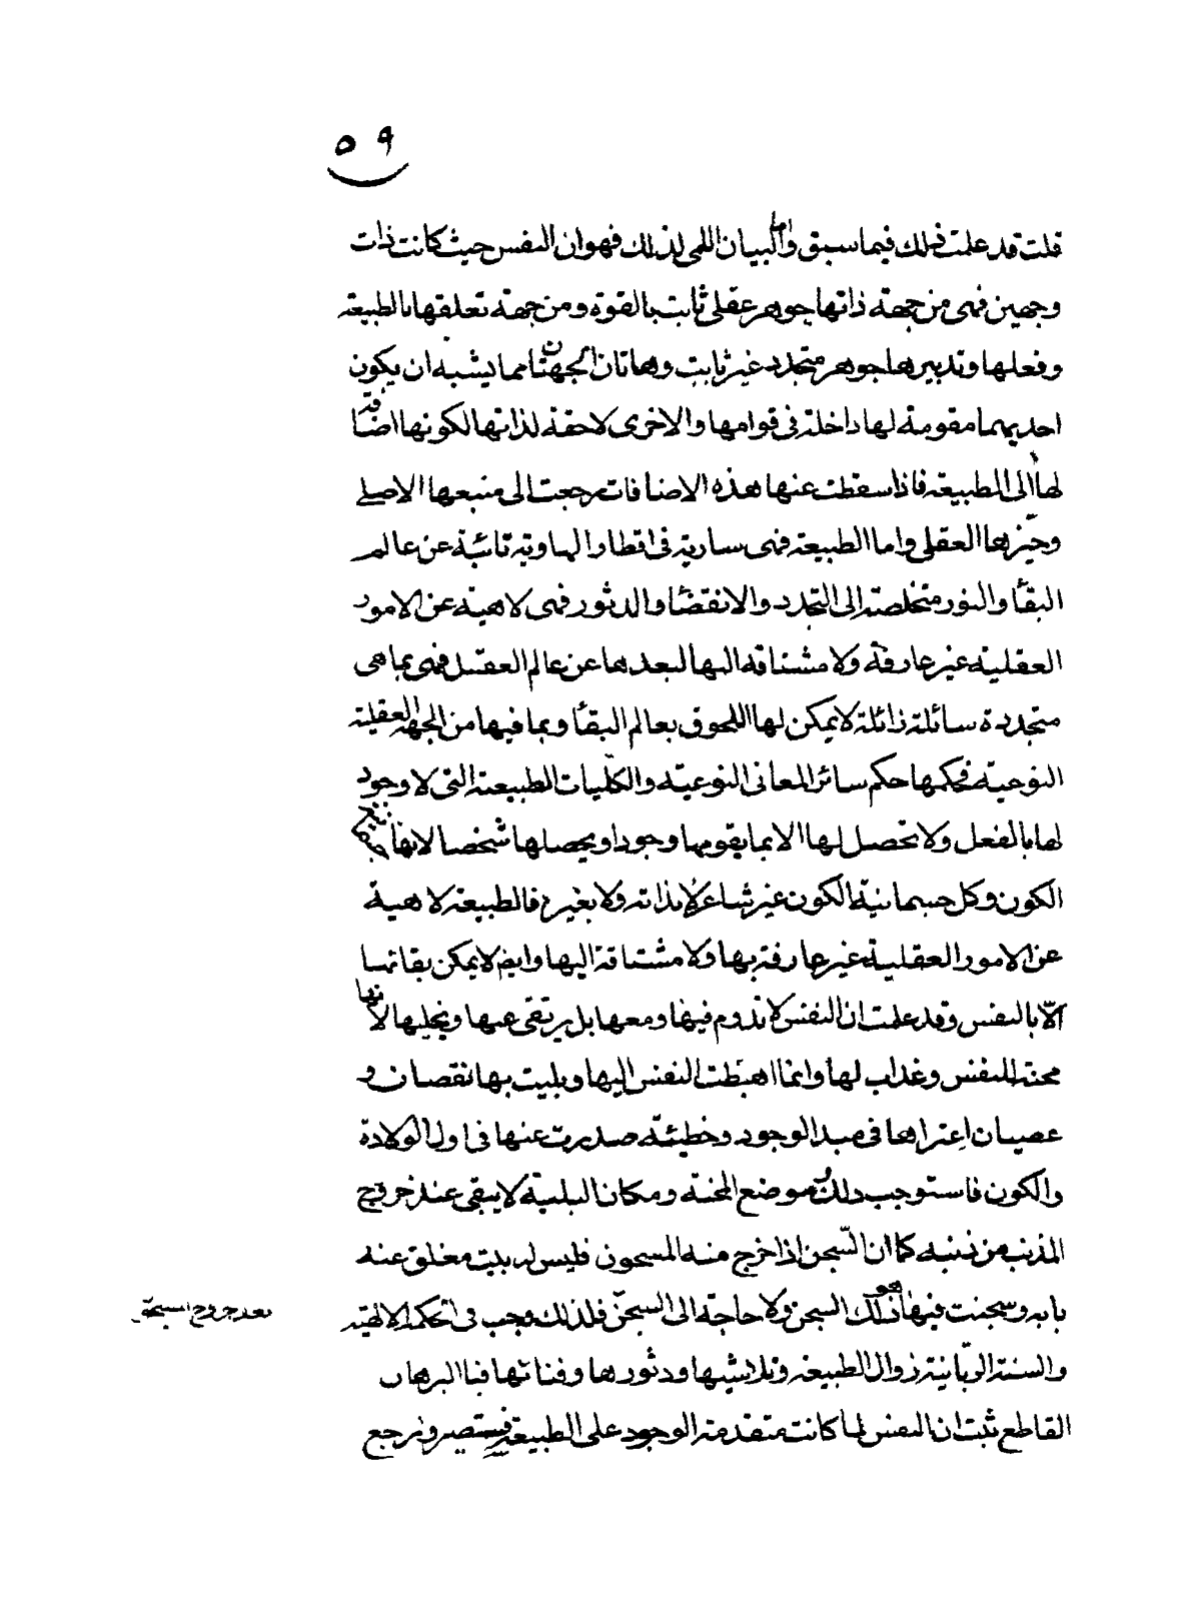 ٥٩
قلت قد علمت ذلك فيما سبق واما البيان اللمى لذلك فهو ان النفس حيث كانت ذات
وجهين فهى من جهة ذاتها جوهر عقلى ثابت بالقوة ومن جهة تعلقها بالطبيعة
وفعلها وتدبيرها جوهر متجدد غير ثابت وهاتان الجهتان مما يشبه ان يكون
احديهما مقومة لها داخلة فى قوامها والاخرى لاحقة لذاتها لكونها اضافة
لها الى الطبيعة فاذا سقطت عنها هذه الاضافات رجعت الى منبعها الاصلى
وحيّزها العقلى واما الطبيعة فهى سارية فى اقطار الهاوية نائبة عن عالم
البقأ والنور متخلصة الى التجدد والانقضأ والدثور فهى لاهية عن الامور
العقلية غير عارفة ولا مشتاقة اليها لبعدها عن عالم العقل فهى بما هى
متجددة سائلة زائلة لا يمكن لها اللحوق بعالم البقأ وبما فيها من الجهة العقلية
النوعية فحكمها حكم سائر المعانى النوعية والكلّيات الطبيعية التى لا وجود
لها بالفعل ولا تحصل لها الا بما يقومها وجودا ويحصلها شخصا لانها
الكون وكل جسمانية الكون غير شاعر لا بذاته ولا بغيره فالطبيعة لاهية
عن الامور العقلية غير عارفة بها ولا مشتاقة اليها وايضا لا يمكن بقائها
الّا بالنفس وقد علمت ان النفس لا تدوم فيها ومعها بل يرتقى عنها ويخليها لانها
محنة للنفس وعذاب لها وانما اهبطت النفس اليها وبليت بها نقصان و
عصيان اعتراها فى مبدا الوجود وخطيئة صدرت عنها فى اول الولادة
والكون فاستوجب ذلك وموضع المحنة ومكان البلية لا يبقى عند خروج
المذنب من ذنبه كما ان السّجن اذا خرج منه المسجون فليس له بيت مغلق عنه
بابه وسجنت فيها هو ذلك السجن ولا حاجة الى السجن فلذلك وجب فى الحكمة الالهية
بعد خروج
والسنة الربّانية زوال الطبيعة وتلاشيها ودثورها وفنائها فبا البرهان
القاطع ثبت ان النفس لما كانت متقدمة الوجود على الطبيعة فستصير وترجع